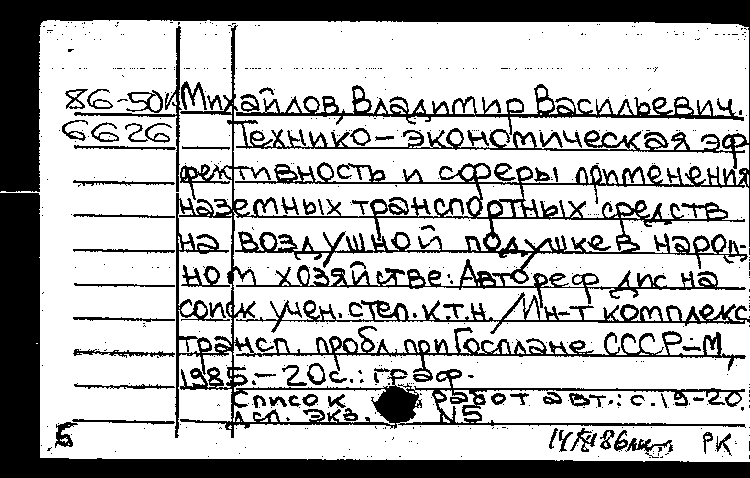 86-50к Михайлов, Владимир Васильевич.
6626 Технико-экономическая эф-
фективность и сферы применения
наземных транспортных средств
на воздушной подушке в народ-
ном хозяйстве: Автореф дис. на
соиск. учен. степ. к.т.н. / Ин-т комплекс.
трансп. пробл. при Госплане СССР.-М.,
1985.-20с.: граф.
Список работ авт.: с.19-20.
дсп. экз. N5.
Б РК